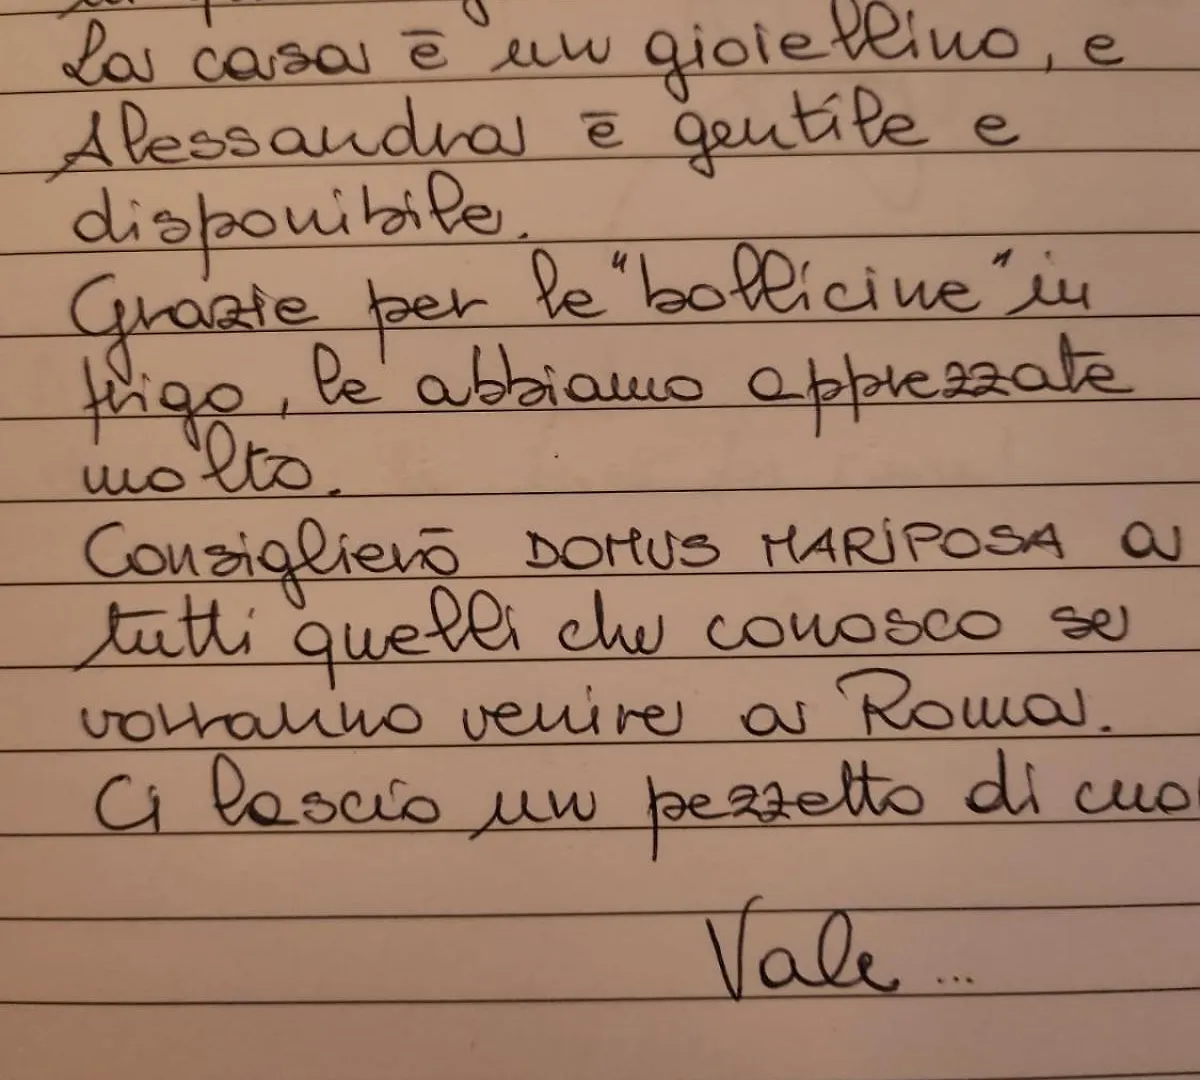 La casa è un gioiellino, e
Alessandra è gentile e
disponibile.
Grazie per le "bollicine" in
frigo, le abbiamo apprezzate
molto.
Consiglierò DOMUS MARIPOSA a
tutti quelli che conosco se
vorranno venire a Roma.
Ci lascio un pezzetto di cuo
Vale...